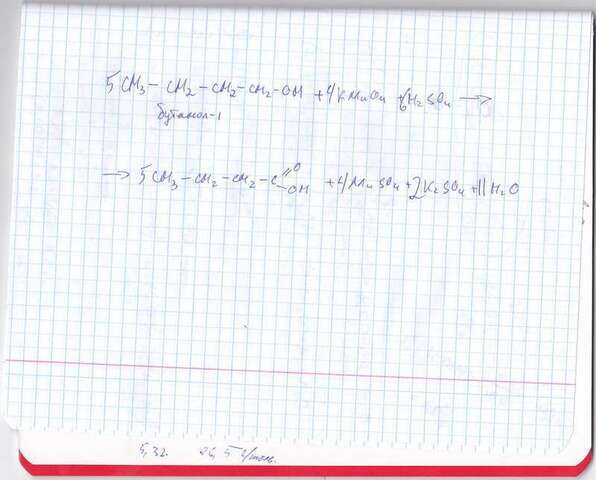 5CH₃ – CH₂ – CH₂ – CH₂ – OH + 4KMnO₄ + 6H₂SO₄ →
бутанол-1
→ 5CH₃ – CH₂ – CH₂ – C =O –OH + 4MnSO₄ + 2K₂SO₄ + 11H₂O
5,32.